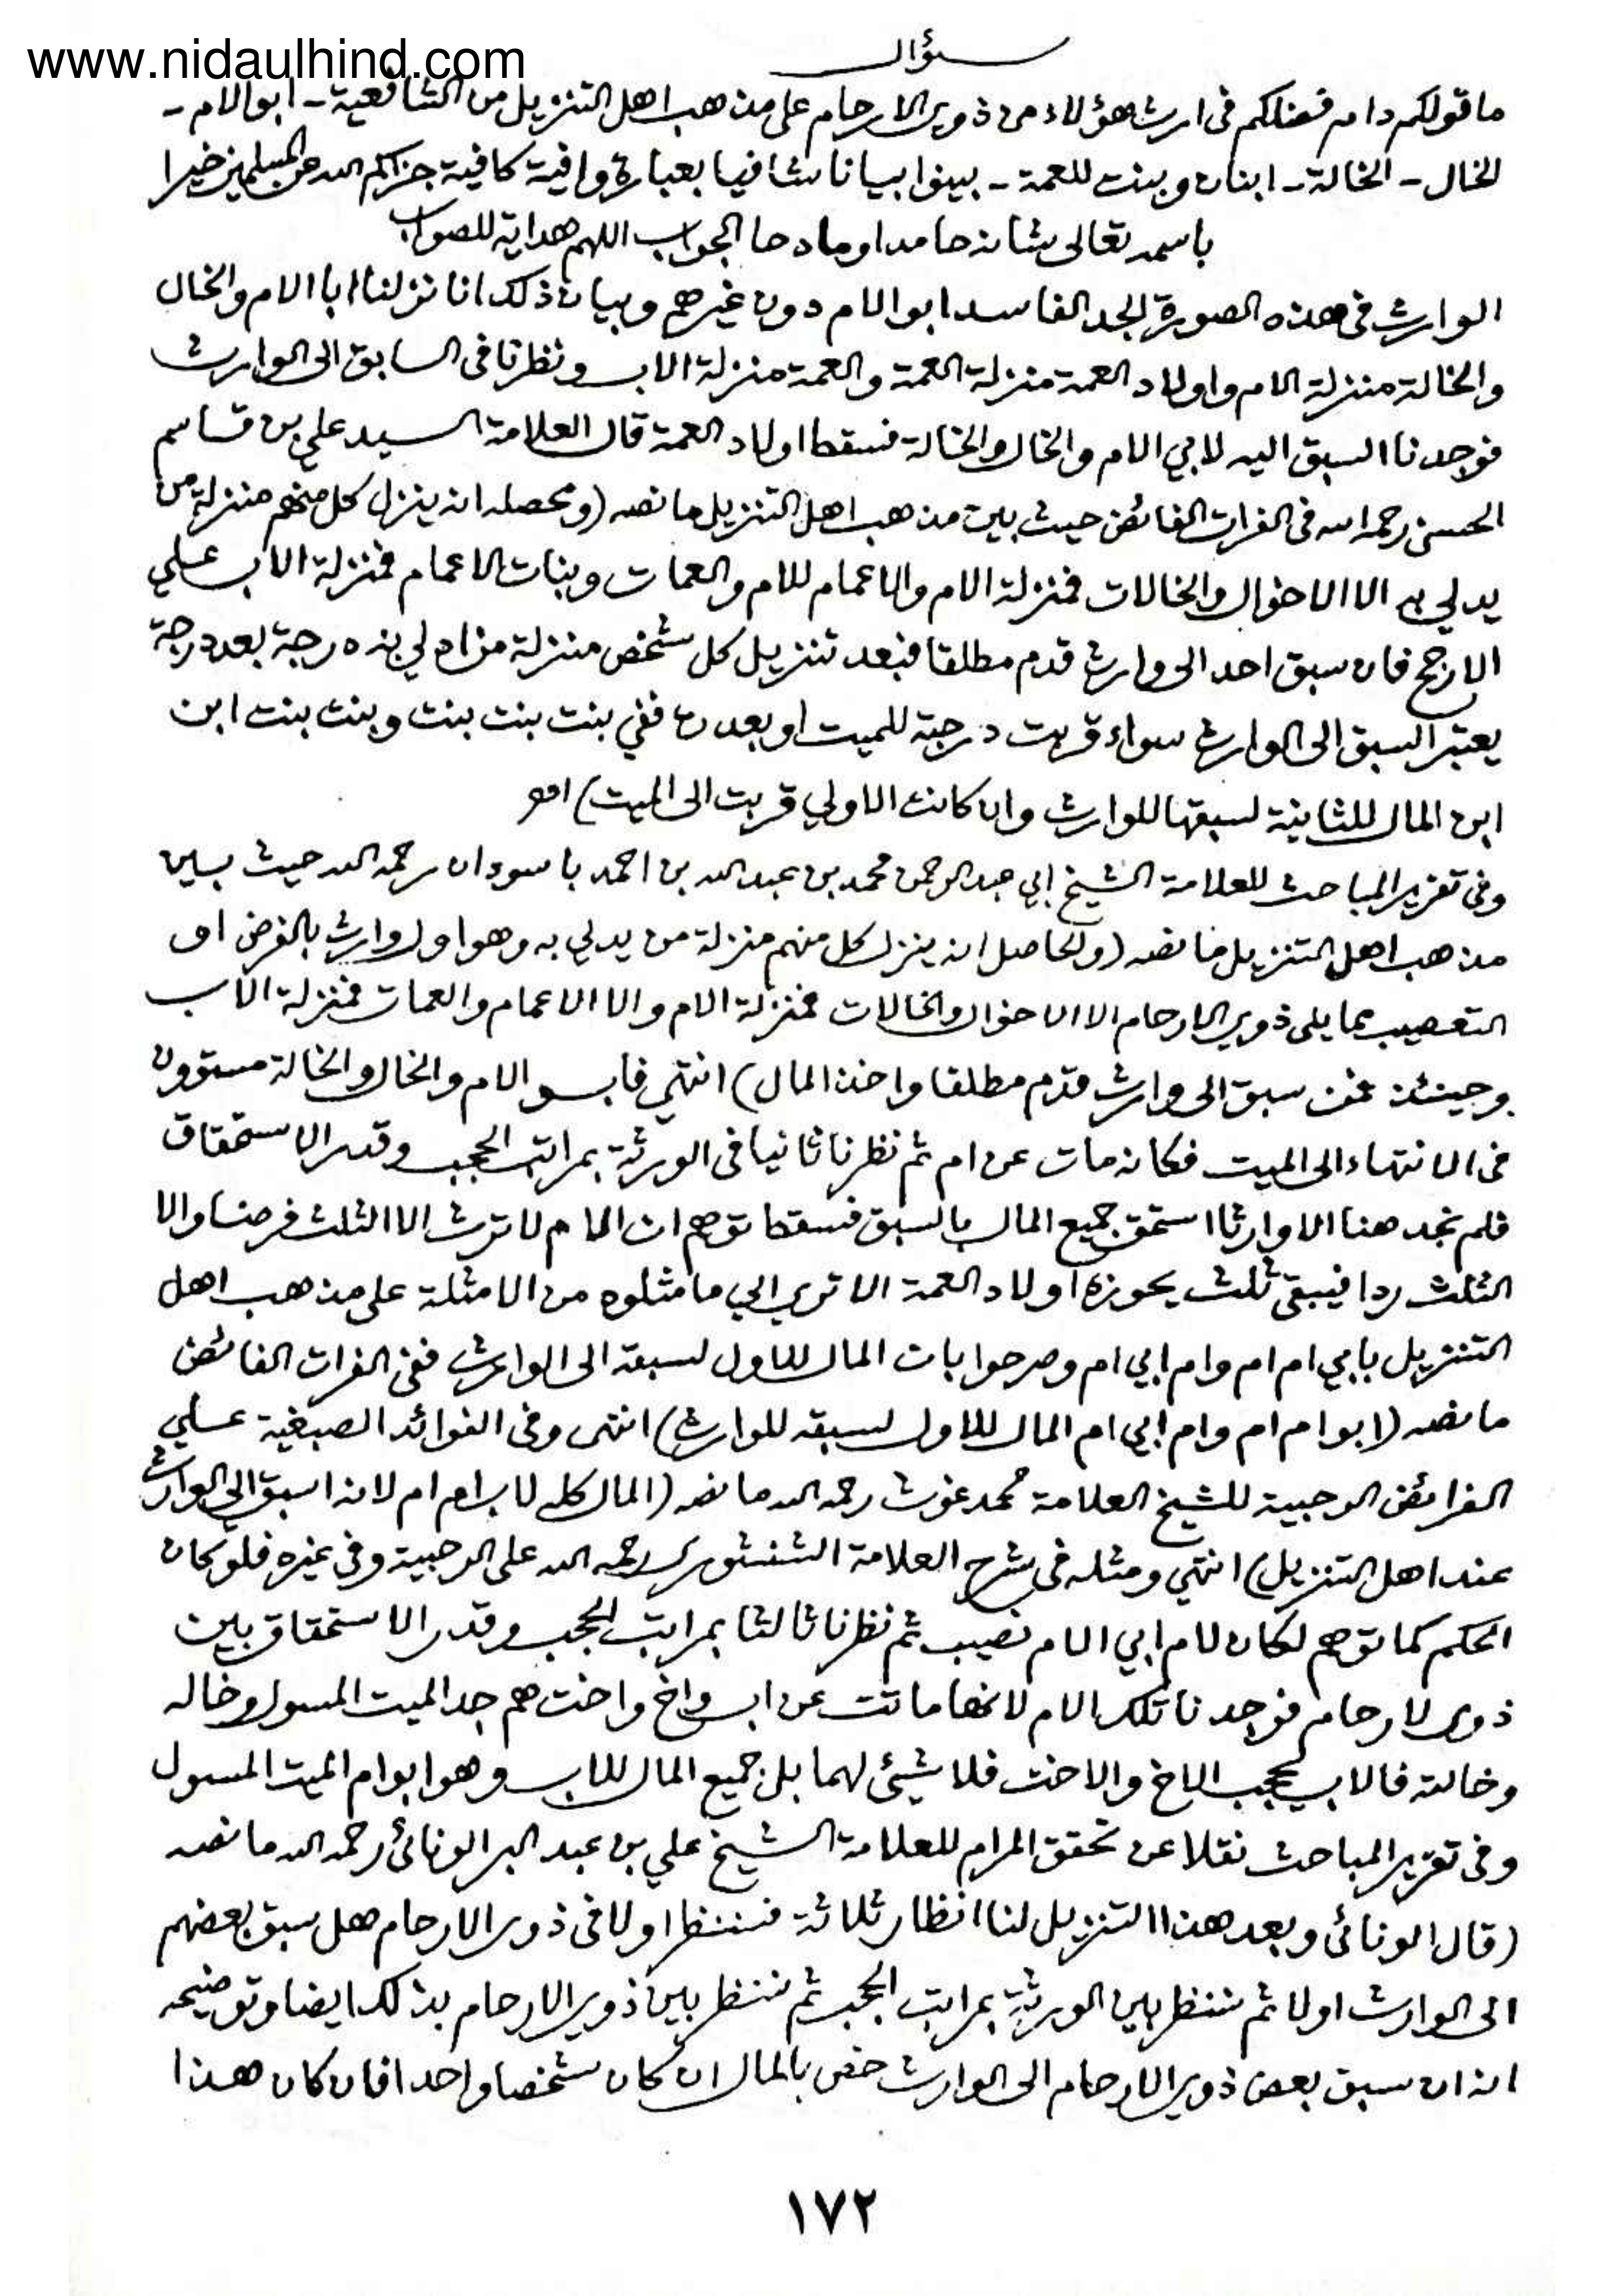 www.nidaulhind.com
سؤال
ما قولكم دام فضلكم فى ارث هؤلاء من ذوى الارحام على مذهب اهل التنزيل من الشافعية - ابو الام -
الخال - الخالة - ابنان وبنت للعمة - بينوا بيانا شافيا بعبارة وافية كافية جزاكم الله عن المسلمين خيرا
باسمه تعالى شانه حامدا ومادحا الجواب اللهم هداية للصواب
الوارث فى هذه الصورة الجد الفاسد ابو الام دون غيرهم وبيان ذلك انا نزلنا ابا الام والخال
والخالة منزلة الام واولاد العمة منزلة العمة والعمة منزلة الاب ونظرنا فى السابق الى الوارث
فوجدنا السبق اليه لابي الام والخال والخالة فسقط اولاد العمة قال العلامة السيد علي بن قاسم
الحسنى رحمه الله فى الفرات الفائض حيث بين مذهب اهل التنزيل ما نصه (ومحصله انه ينزل كل منهم منزلة من
يدلي به الا الاخوال والخالات فمنزلة الام والاعمام للام والعمات وبنات الاعمام فمنزلة الاب علي
الارجح فان سبق احد الى وارث قدم مطلقا فبعد تنزيل كل شخص منزلة من ادلي به درجة بعد درجة
يعتبر السبق الى الوارث سواء قربت درجة للميت او بعدت ففي بنت بنت بنت وبنت بنت ابن
ابن المال للثانية لسبقها للوارث وان كانت الاولي قربت الى الميت) اهـ
وفى تقرير المباحث للعلامة الشيخ ابي عبد الرحمن محمد بن عبد الله بن احمد باسودان رحمه الله حيث بين
مذهب اهل التنزيل ما نصه (والحاصل انه ينزل كل منهم منزلة من يدلي به وهو اول وارث بالفرض او
التعصيب مما يلى ذوي الارحام الا الاخوال والخالات فمنزلة الام والا الاعمام والعمات فمنزلة الاب
وحينئذ فمن سبق الى وارث قدم مطلقا واخذ المال) انتهي فابو الام والخال والخالة مستوون
فى الانتهاء الى الميت فكانه مات عن ام ثم نظرنا ثانيا فى الورثة بمراتب الحجب وقدر الاستحقاق
فلم نجد هنا الا وارثا استحق جميع المال بالسبق فسقط توهم ان الام لا ترث الا الثلث فرضا والا
الثلث ردا فيبقى ثلث يحوزه اولاد العمة الا تري الي ما مثلوه من الامثلة على مذهب اهل
التنزيل بابي ام ام وام ابي ام وصرحوا بان المال للاول لسبقه الى الوارث ففى الفرات الفائض
ما نصه (ابو ام ام وام ابي ام المال للاول لسبقه للوارث) انتهى وفى الفوائد الصبغية علي
الفرائض الرحبية للشيخ العلامة محمد غوث رحمه الله ما نصه (المال كله لاب ام ام لانه اسبق الي الوارث
عند اهل التنزيل) انتهي ومثله فى شرح العلامة الشنشورى رحمه الله على الرحبية وفي غيره فلو كان
الحكم كما توهم لكان لام ابي الام نصيب ثم نظرنا ثالثا بمراتب الحجب وقدر الاستحقاق بين
ذوى الارحام فوجدنا تلك الام لانها ماتت عن اب واخ واخت هم جد الميت المسول وخاله
وخالته فالاب يحجب الاخ والاخت فلا شيئ لهما بل جميع المال للاب وهو ابو ام الميت المسول
وفى تقرير المباحث نقلا عن تحقق المرام للعلامة الشيخ علي بن عبد البر الونائى رحمه الله ما نصه
(قال الونائى وبعد هذا التنزيل لنا انظار ثلاثة فننظر اولا فى ذوى الارحام هل سبق بعضهم
الى الوارث اولا ثم ننظر بين الورثة بمراتب الحجب ثم ننظر بين ذوي الارحام بذلك ايضا وتوضيحه
انه ان سبق بعض ذوي الارحام الى الوارث خص بالمال ان كان شخصا واحدا فان كان هذا
١٧٢